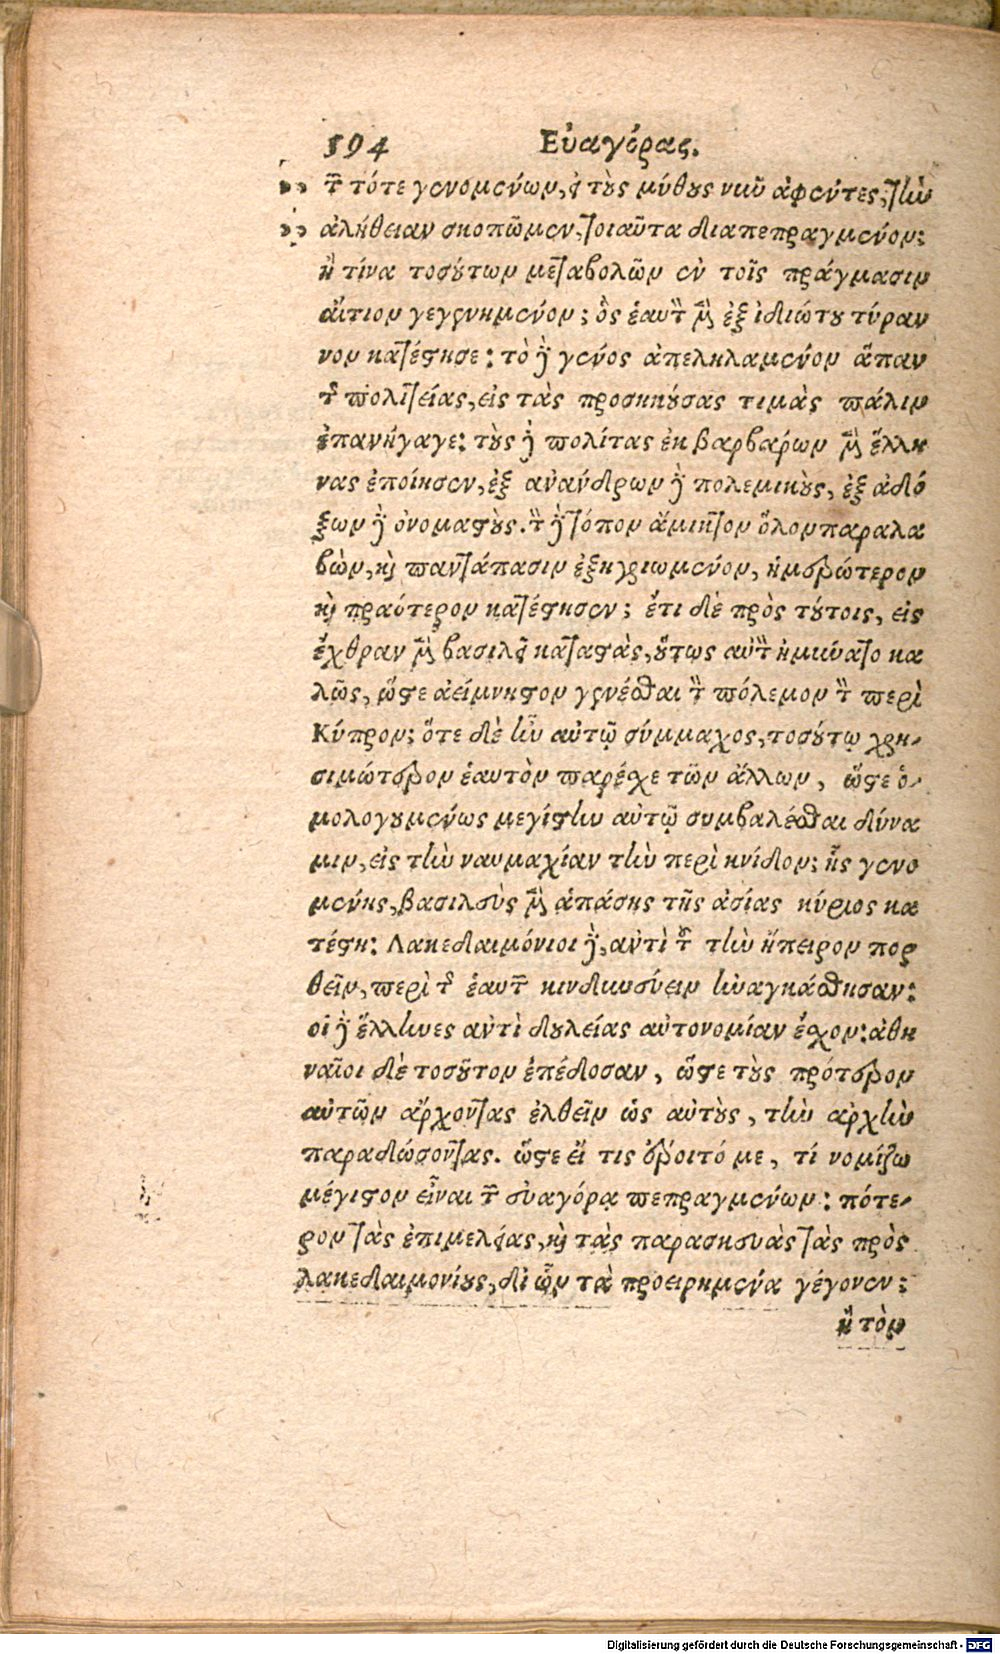 394 Εὐαγόρας.
τῶν τότε γενομένων, εἰ τοὺς μύθους νῦν ἀφέντες, τὴν
ἀλήθειαν σκοπῶμεν, τοιαῦτα διαπεπραγμένον;
ἢ τίνα τοσούτων μεταβολῶν ἐν τοῖς πράγμασιν
αἴτιον γεγενημένον; ὃς ἑαυτὸν μὲν ἐξ ἰδιώτου τύραν
νον κατέστησε: τὸ δὲ γένος ἀπεληλαμένον ἅπαν
τῆς πολιτείας, εἰς τὰς προσηκούσας τιμὰς πάλιν
ἐπανήγαγε: τοὺς δὲ πολίτας ἐκ βαρβάρων μὲν ἕλλη
νας ἐποίησεν, ἐξ ἀνάνδρων δὲ πολεμικοὺς, ἐξ ἀδό
ξων δὲ ὀνομαστοὺς. τὸν δὲ τόπον ἄμικτον ὅλον παραλα
βὼν, καὶ παντάπασιν ἐξηγριωμένον, ἡμερώτερον
καὶ πραότερον κατέστησεν; ἔτι δὲ πρὸς τούτοις, εἰς
ἔχθραν μὲν βασιλεῖ καταστὰς, οὕτως αὐτὸν ἠμύνατο κα
λῶς, ὥστε ἀείμνηστον γενέσθαι τὸν πόλεμον τὸν περὶ
Κύπρον; ὅτε δὲ ἦν αὐτῷ σύμμαχος, τοσούτῳ χρη-
σιμώτερον ἑαυτὸν παρέσχε τῶν ἄλλων, ὥστε ὁ-
μολογουμένως μεγίστην αὐτῷ συμβαλέσθαι δύνα
μιν, εἰς τὴν ναυμαχίαν τὴν περὶ κνίδον; ἧς γενο
μένης, βασιλεὺς μὲν ἁπάσης τῆς ἀσίας κύριος κα
τέστη: Λακεδαιμόνιοι δὲ, ἀντὶ τοῦ τὴν ἤπειρον πορ
θεῖν, περὶ τῆς ἑαυτῶν κινδυνεύειν ἠναγκάσθησαν:
οἱ δὲ ἕλληνες ἀντὶ δουλείας αὐτονομίαν ἔσχον: ἀθη
ναῖοι δὲ τοσοῦτον ἐπέδοσαν, ὥστε τοὺς πρότερον
αὐτῶν ἄρχοντας ἐλθεῖν ὡς αὐτοὺς, τὴν ἀρχὴν
παραδώσοντας. ὥστε εἴ τις ἔροιτό με, τί νομίζω
μέγιστον εἶναι τῶν εὐαγόρᾳ πεπραγμένων: πότε-
ρον τὰς ἐπιμελείας, καὶ τὰς παρασκευὰς τὰς πρὸς
λακεδαιμονίους, δι ὧν τὰ προειρημένα γέγονεν;
ἢ τὸν
Digitalisierung gefördert durch die Deutsche Forschungsgemeinschaft - DFG